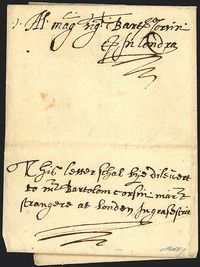 Al mag.co sig.r Barth.o Corsin
in londra
This letter schal bye dileuert
to mr Bartolom corsini mart
strangere at London in grasestret